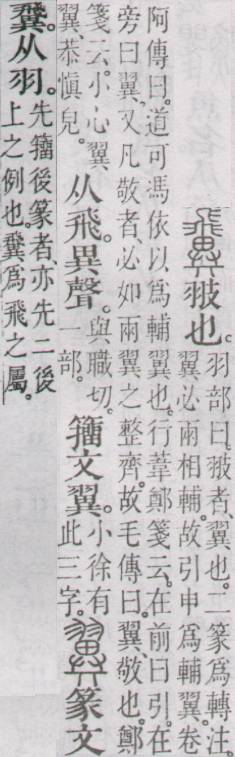 𩙺翄也。羽部曰。翄者、翼也。二篆爲轉注。
翼必兩相輔。故引申爲輔翼。卷
阿傳曰。道可馮依以爲輔翼也。行葦鄭箋云。在前曰引。在
旁曰翼。又凡敬者、必如兩翼之整齊。故毛傳曰。翼、敬也。鄭
箋云。小心翼
翼、恭愼皃。从飛。異聲。與職切。
一部。籒文翼。小徐有
此三字。翼篆文
𩙺从羽。先籒後篆者、亦先二後
上之例也。𩙺爲飛之屬。